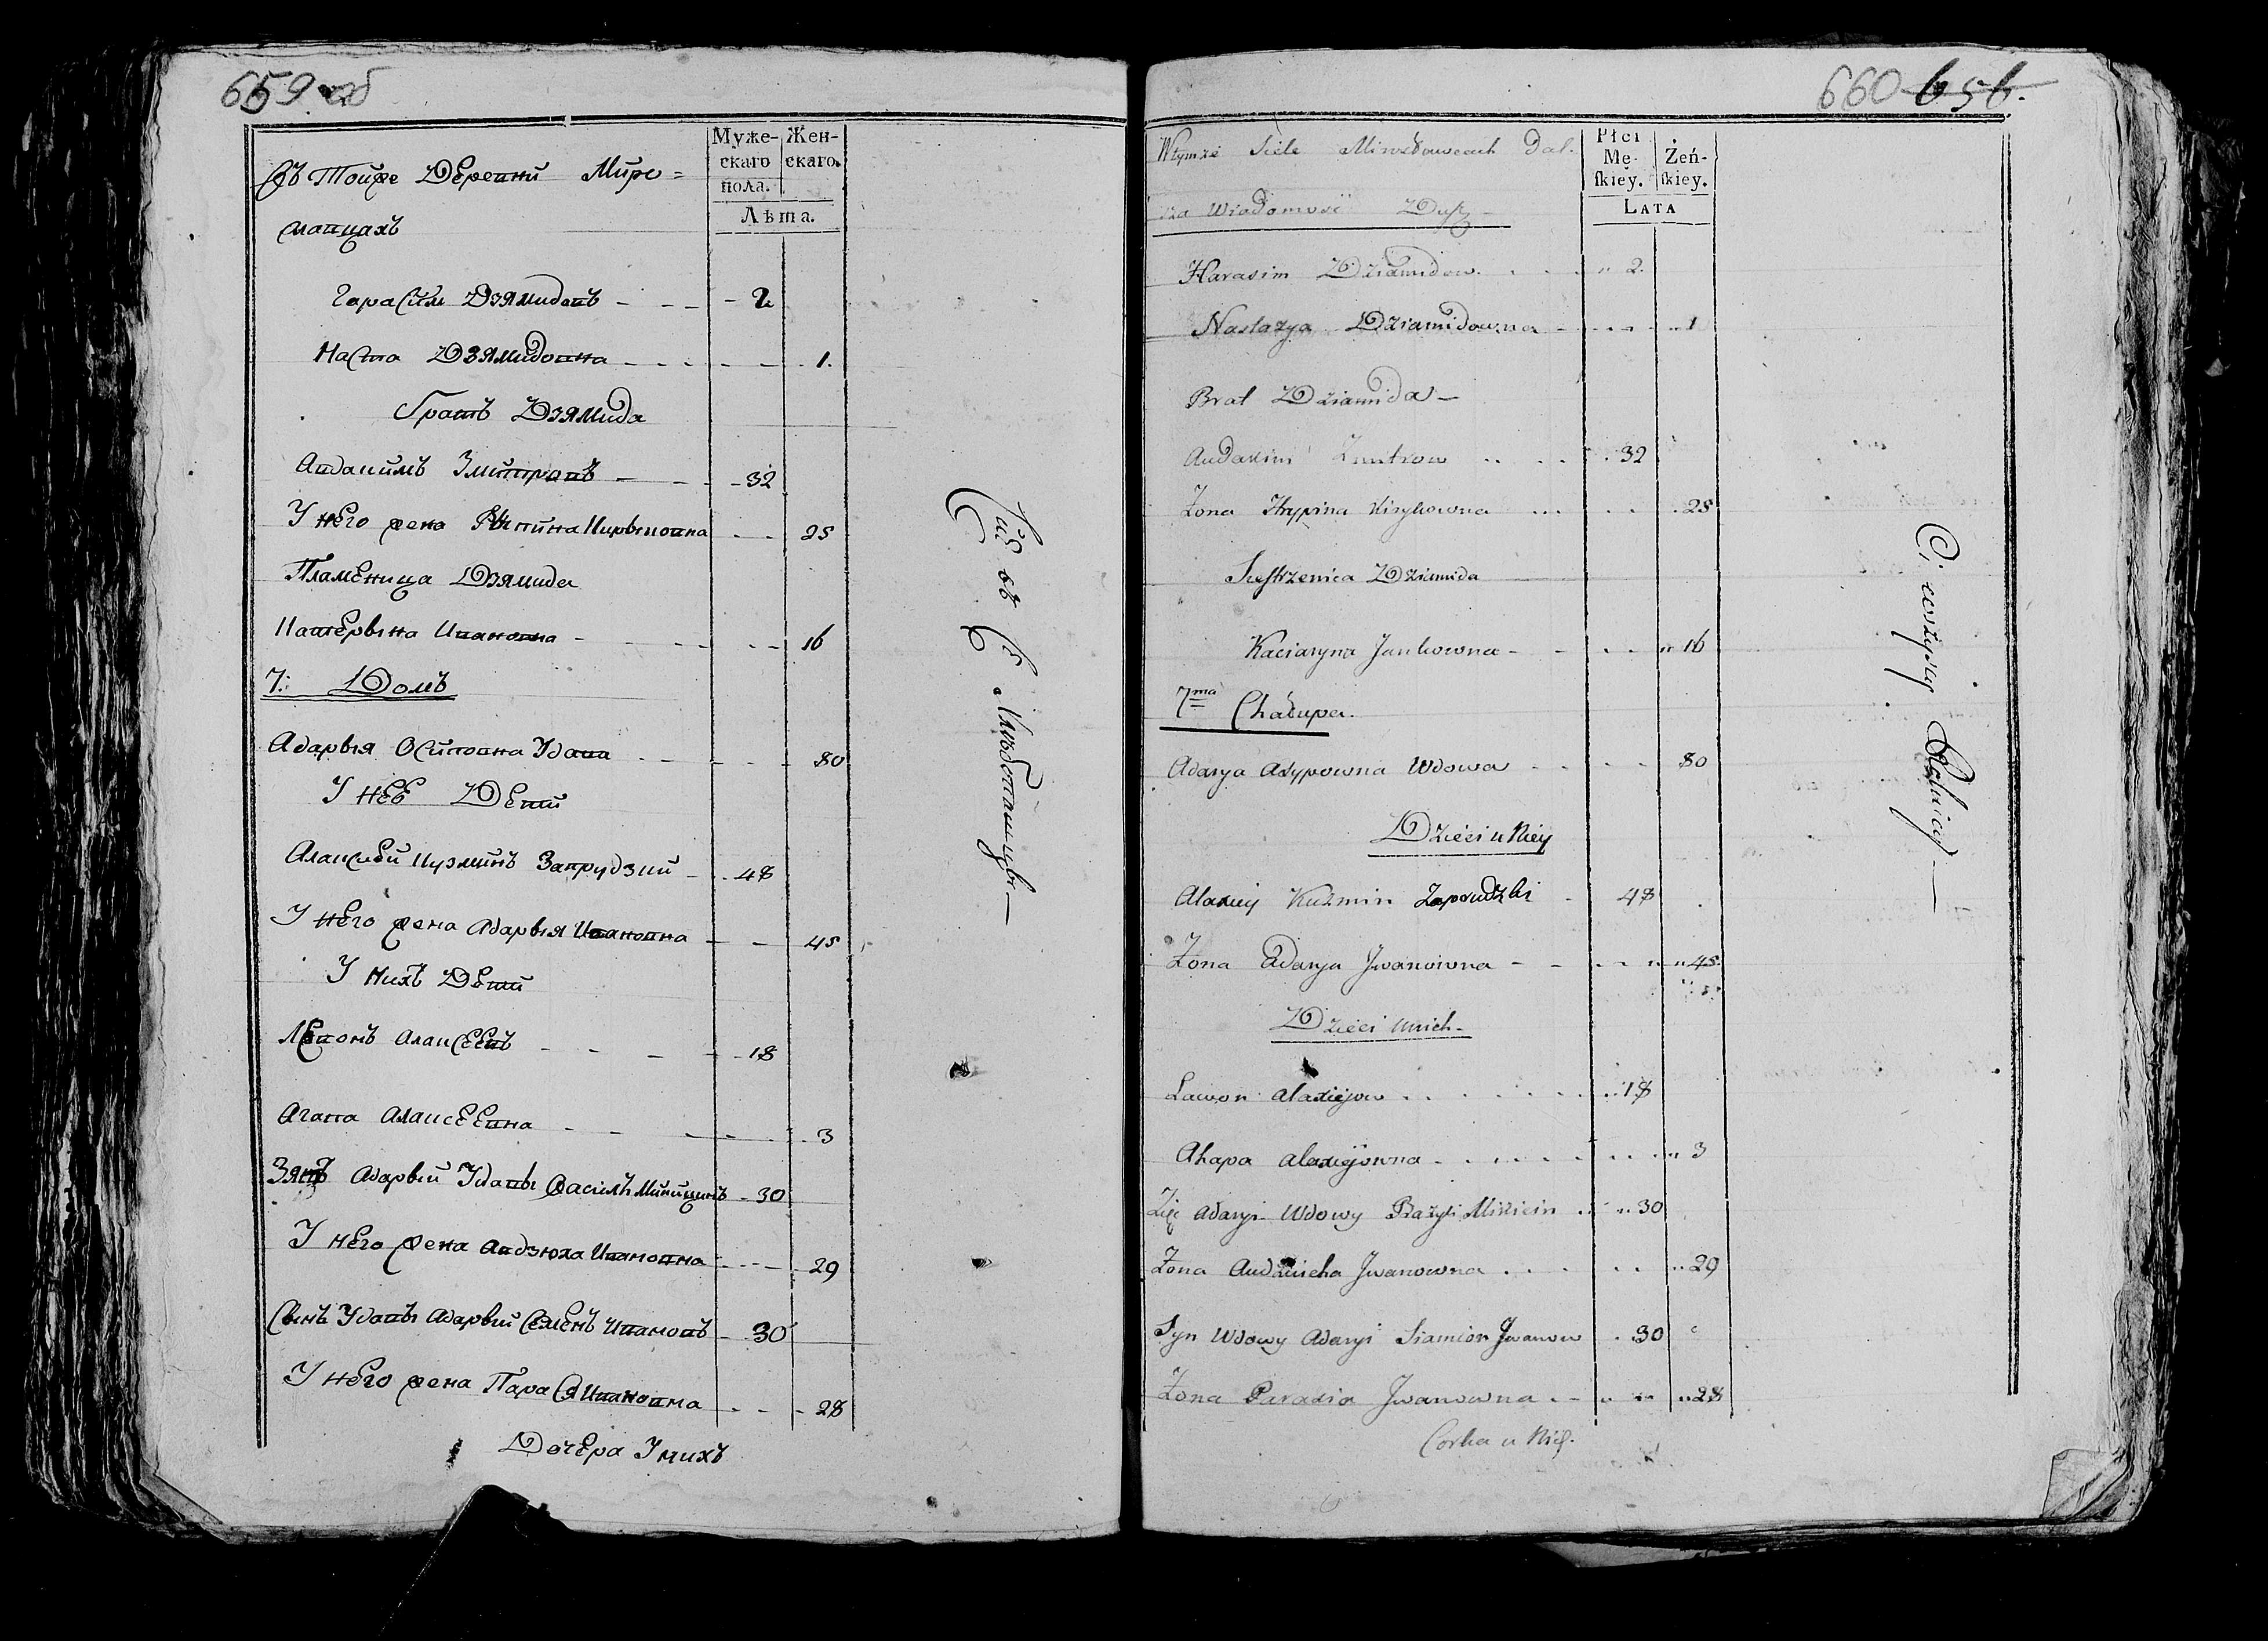 659 об
Муже- Жен-
скаго скаго.
пола.
Лѣта.
Въ Тойже Деревни Миро=
Гарасим Дзямидовъ - - - 2
Настa Дзямидовна - - - 1.
Братъ Дзямида
Авдакимъ Змитровъ - - 32
У него жена Кирыковна - - 25
Пламеница Дзямида
Катерына Ивановна - - 16
7: Домъ
Адарыя Осиповна Удова - - 80
У нее Дети
Алаксей Кузминъ Запрудзкий - 48
У него жена Адарыя Ивановна - - 45
У нихъ Дети
Левонъ Алаксеевъ - - - 18
Агапа Алаксеевна - - - 3
Зять Адарыи Удавы Василь Микицинъ - 30
У него жена Авдзюха Ивановна - - 29
Сынъ Удавы Адарыи Семенъ Ивановъ - 30
У него жена Парася Ивановна - - 28
Дочера У нихъ
Сии въ С
660 656.
Płci
Mę- Żeń-
ſkiey. ſkiey.
LATA
W tymże Siele Dal.
sza Wiadomość Dusz
Harasim Dziamidow. . . . 2.
Nastazya Dziamidowna - . . . 1
Brat Dziamida -
Audakim Zmitrow . . . 32
Żona Hrypina Kirykowna . . . 28
Siestrzenica Dziamida
Kaciaryna Jankowna - - . . 16
7ma Chałupa.
Adarya Asypowna Wdowa - - . . 80
Dzieci u Niey
Alaxiey Kuźmin Zaprudzki - 48
Żona Adarya Jwanowna - - . . 45.
Dzieci u nich -
Lawon Alaxiejow . . . . 18
Ahapa Alaxiejowna . . . . 3
Zięć Adaryi Wdowy Bazyli Mikicin . . 30
Żona Audziucha Jwanowna . . . . 29
Syn Wdowy Adaryi Siamion Jwanow . 30
Żona Parasia Jwanowna . - . . 28
Corka u Nich.
Ci wszyscy